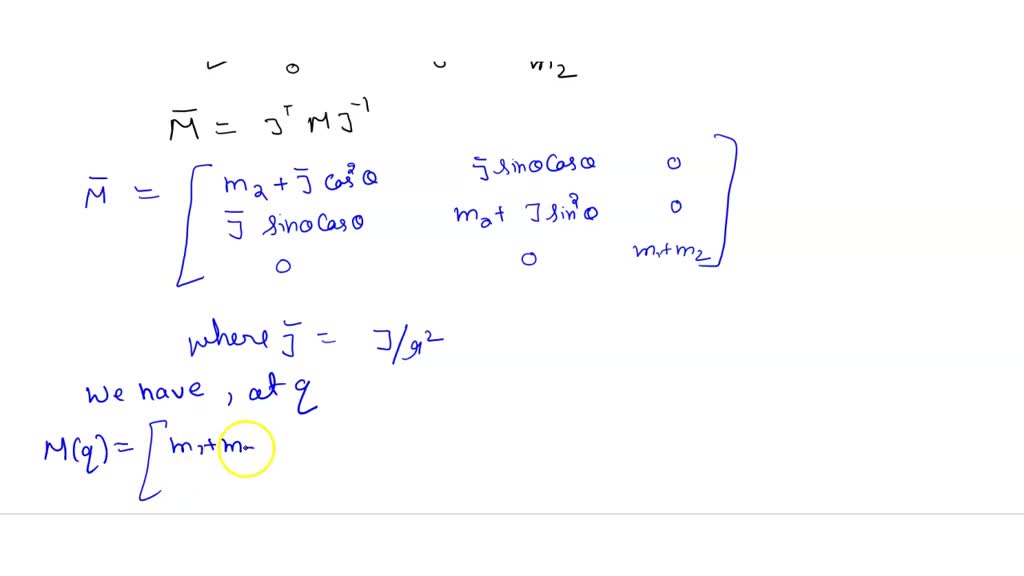 0 m2
M̄ = J^T M J^-1
M̄ = [ m2 + J̄ cos²θ J̄ sinθ Cosθ 0
J̄ sinθ Cosθ m2 + J sin²θ 0
0 0 m1+m2 ]
where J̄ = J/r²
We have, at q
M(q) = [ m1+m